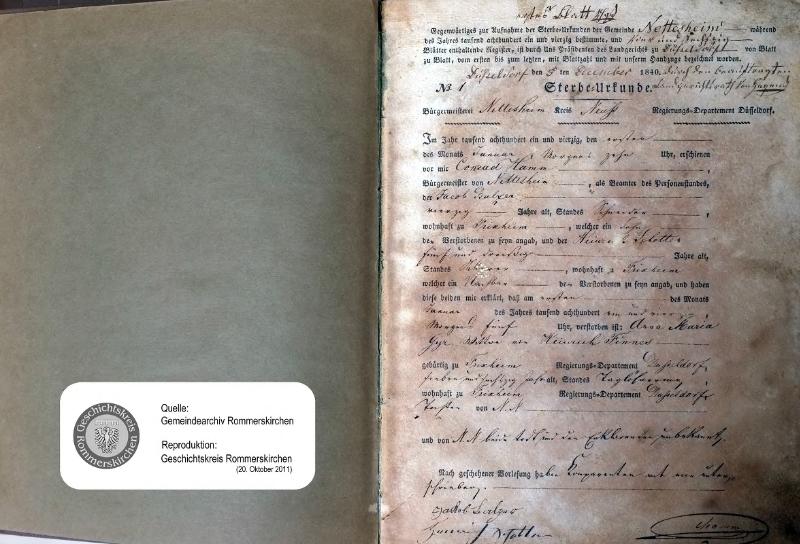 Geschichtskreis
Rommerskirchen
Quelle:
Gemeindearchiv Rommerskirchen
Reproduktion:
Geschichtskreis Rommerskirchen
(20. Oktober 2011)
erstes Blatt
Gegenwärtiges zur Aufnahme der Sterbe-Urkunden der Gemeinde Nettesheim während
des Jahres tausend achthundert ein und vierzig bestimmte, und
Blätter enthaltende Register, ist durch Uns Präsidenten des Landgerichts zu Düsseldorf von Blatt
zu Blatt, vom ersten bis zum letzten, mit Blattzahl und mit unserm Handzuge bezeichnet worden.
Düsseldorf den 5 December 1840.
№ 1 Sterbe-Urkunde.
Bürgermeisterei Nettesheim Kreis Neuss Regierungs-Departement Düsseldorf.
Im Jahr tausend achthundert ein und vierzig, den ersten
des Monats Januar, Morgens zehn Uhr, erschienen
vor mir Conrad Hamm
Bürgermeister von Nettesheim, als Beamter des Personenstandes,
der Jacob
vierzig Jahre alt, Standes
wohnhaft zu Frixheim, welcher ein Sohn
der Verstorbenen zu seyn angab, und der Heinrich Schotten
fünf und dreißig Jahre alt,
Standes wohnhaft zu Frixheim
welcher ein Nachbar der Verstorbenen zu seyn angab, und haben
diese beiden mir erklärt, daß am ersten des Monats
Januar des Jahres tausend achthundert ein und vierzig
Morgens fünf Uhr, verstorben ist: Anna Maria
Wittwe von Heinrich
gebürtig zu Frixheim Regierungs-Departement Düsseldorf,
Jahre alt, Standes Taglöhnerin,
wohnhaft zu Frixheim Regierungs-Departement Düsseldorf
Tochter von N.N.
und von N.N. beide todt und den Erklärenden unbekannt.
Nach geschehener Vorlesung haben Komparenten mit mir unter-
schrieben.
Jakob
Schotten
Hamm